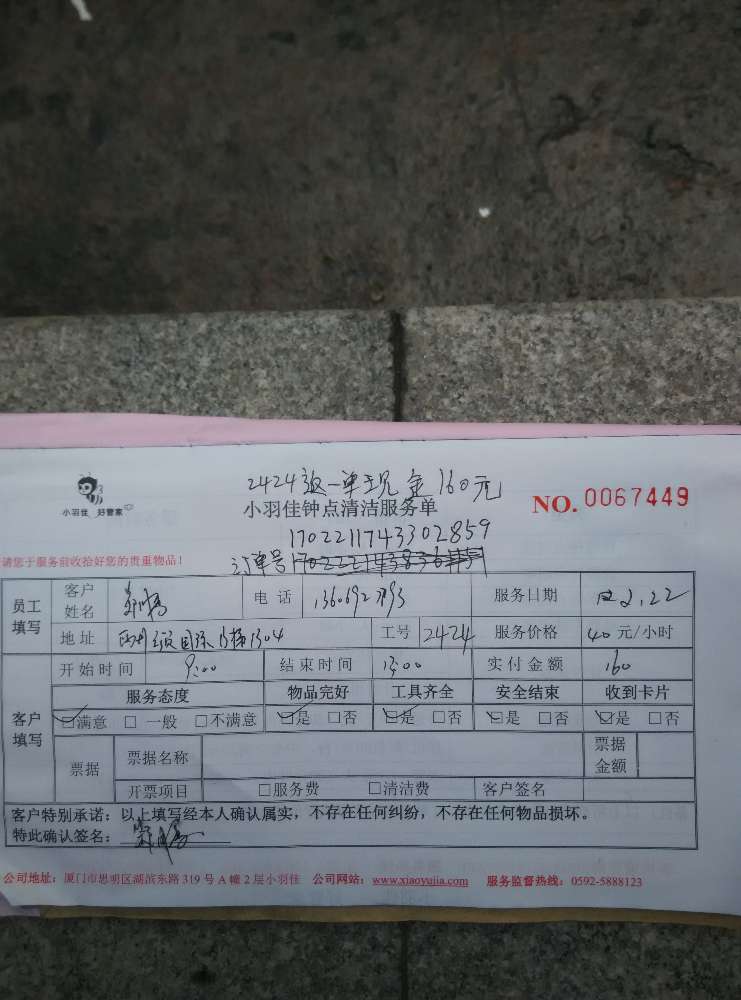 2424返一单现金160元
小羽佳 好管家
小羽佳钟点清洁服务单
NO. 0067449
1702211743302859
请您于服务前收拾好您的贵重物品！
订单号
员工填写
客户姓名
电 话
服务日期 2.22
地 址
工号 2424
服务价格 40 元/小时
开始时间 9:00
结束时间 13:00
实付金额 160
客户填写
服务态度 物品完好 工具齐全 安全结束 收到卡片
☑满意 □ 一般 □不满意 ☑是 □否 ☑是 □否 ☑是 □否 ☑是 □否
票据
票据名称
票据金额
开票项目 □服务费 □清洁费 客户签名
客户特别承诺：以上填写经本人确认属实，不存在任何纠纷，不存在任何物品损坏。
特此确认签名：
公司地址：厦门市思明区湖滨东路 319 号 A 幢 2 层小羽佳 公司网站：www.xiaoyujia.com 服务监督热线：0592-5888123